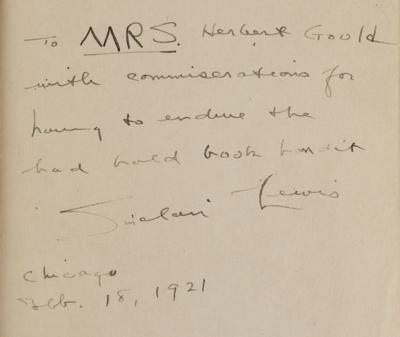 To MRS. Herbert Gould
with commiserations for
having to endure the
bad bold book bandit
Sinclair Lewis
Chicago
Feb. 18, 1921